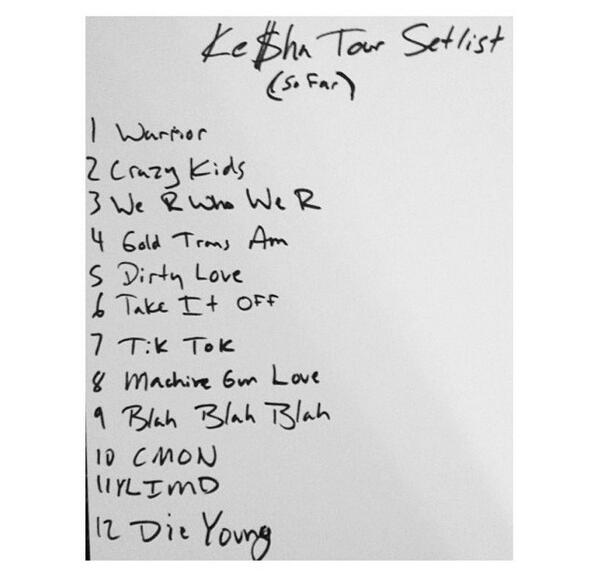 Ke$ha Tour Setlist
(So Far)
1 Warrior
2 Crazy Kids
3 We R Who We R
4 Gold Trans Am
5 Dirty Love
6 Take It Off
7 Tik Tok
8 Machine Gun Love
9 Blah Blah Blah
10 CMON
11 YLIMD
12 Die Young